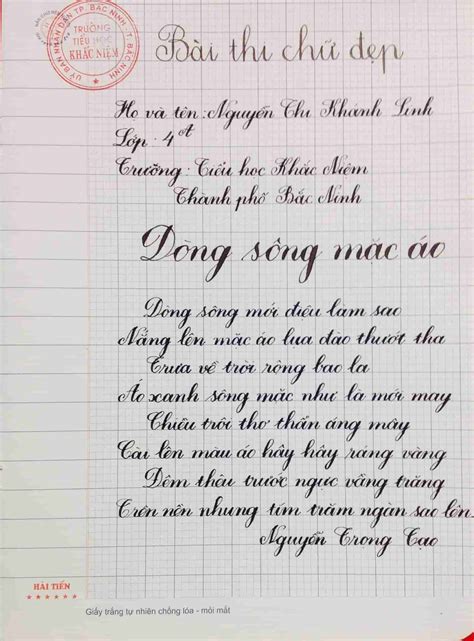 ỦY BAN NHÂN DÂN TP. BẮC NINH - T. BẮC NINH
TRƯỜNG
TIỂU HỌC
KHẮC NIỆM
Bài thi chữ đẹp
Họ và tên : Nguyễn Thi Khánh Linh
Lớp : 4A
Trường : Tiểu học Khắc Niệm
Thành phố Bắc Ninh
Dòng sông mặc áo
Dòng sông mới điệu làm sao
Nắng lên mặc áo lụa đào thướt tha
Trưa về trời rộng bao la
Áo xanh sông mặc như là mới may
Chiều trôi thơ thẩn áng mây
Cài lên màu áo hây hây ráng vàng
Đêm thêu trước ngực vầng trăng
Trên nền nhung tím trăm ngàn sao lên
Nguyễn Trọng Tạo
HẢI TIẾN
Giấy trắng tự nhiên chống lóa - mỏi mắt